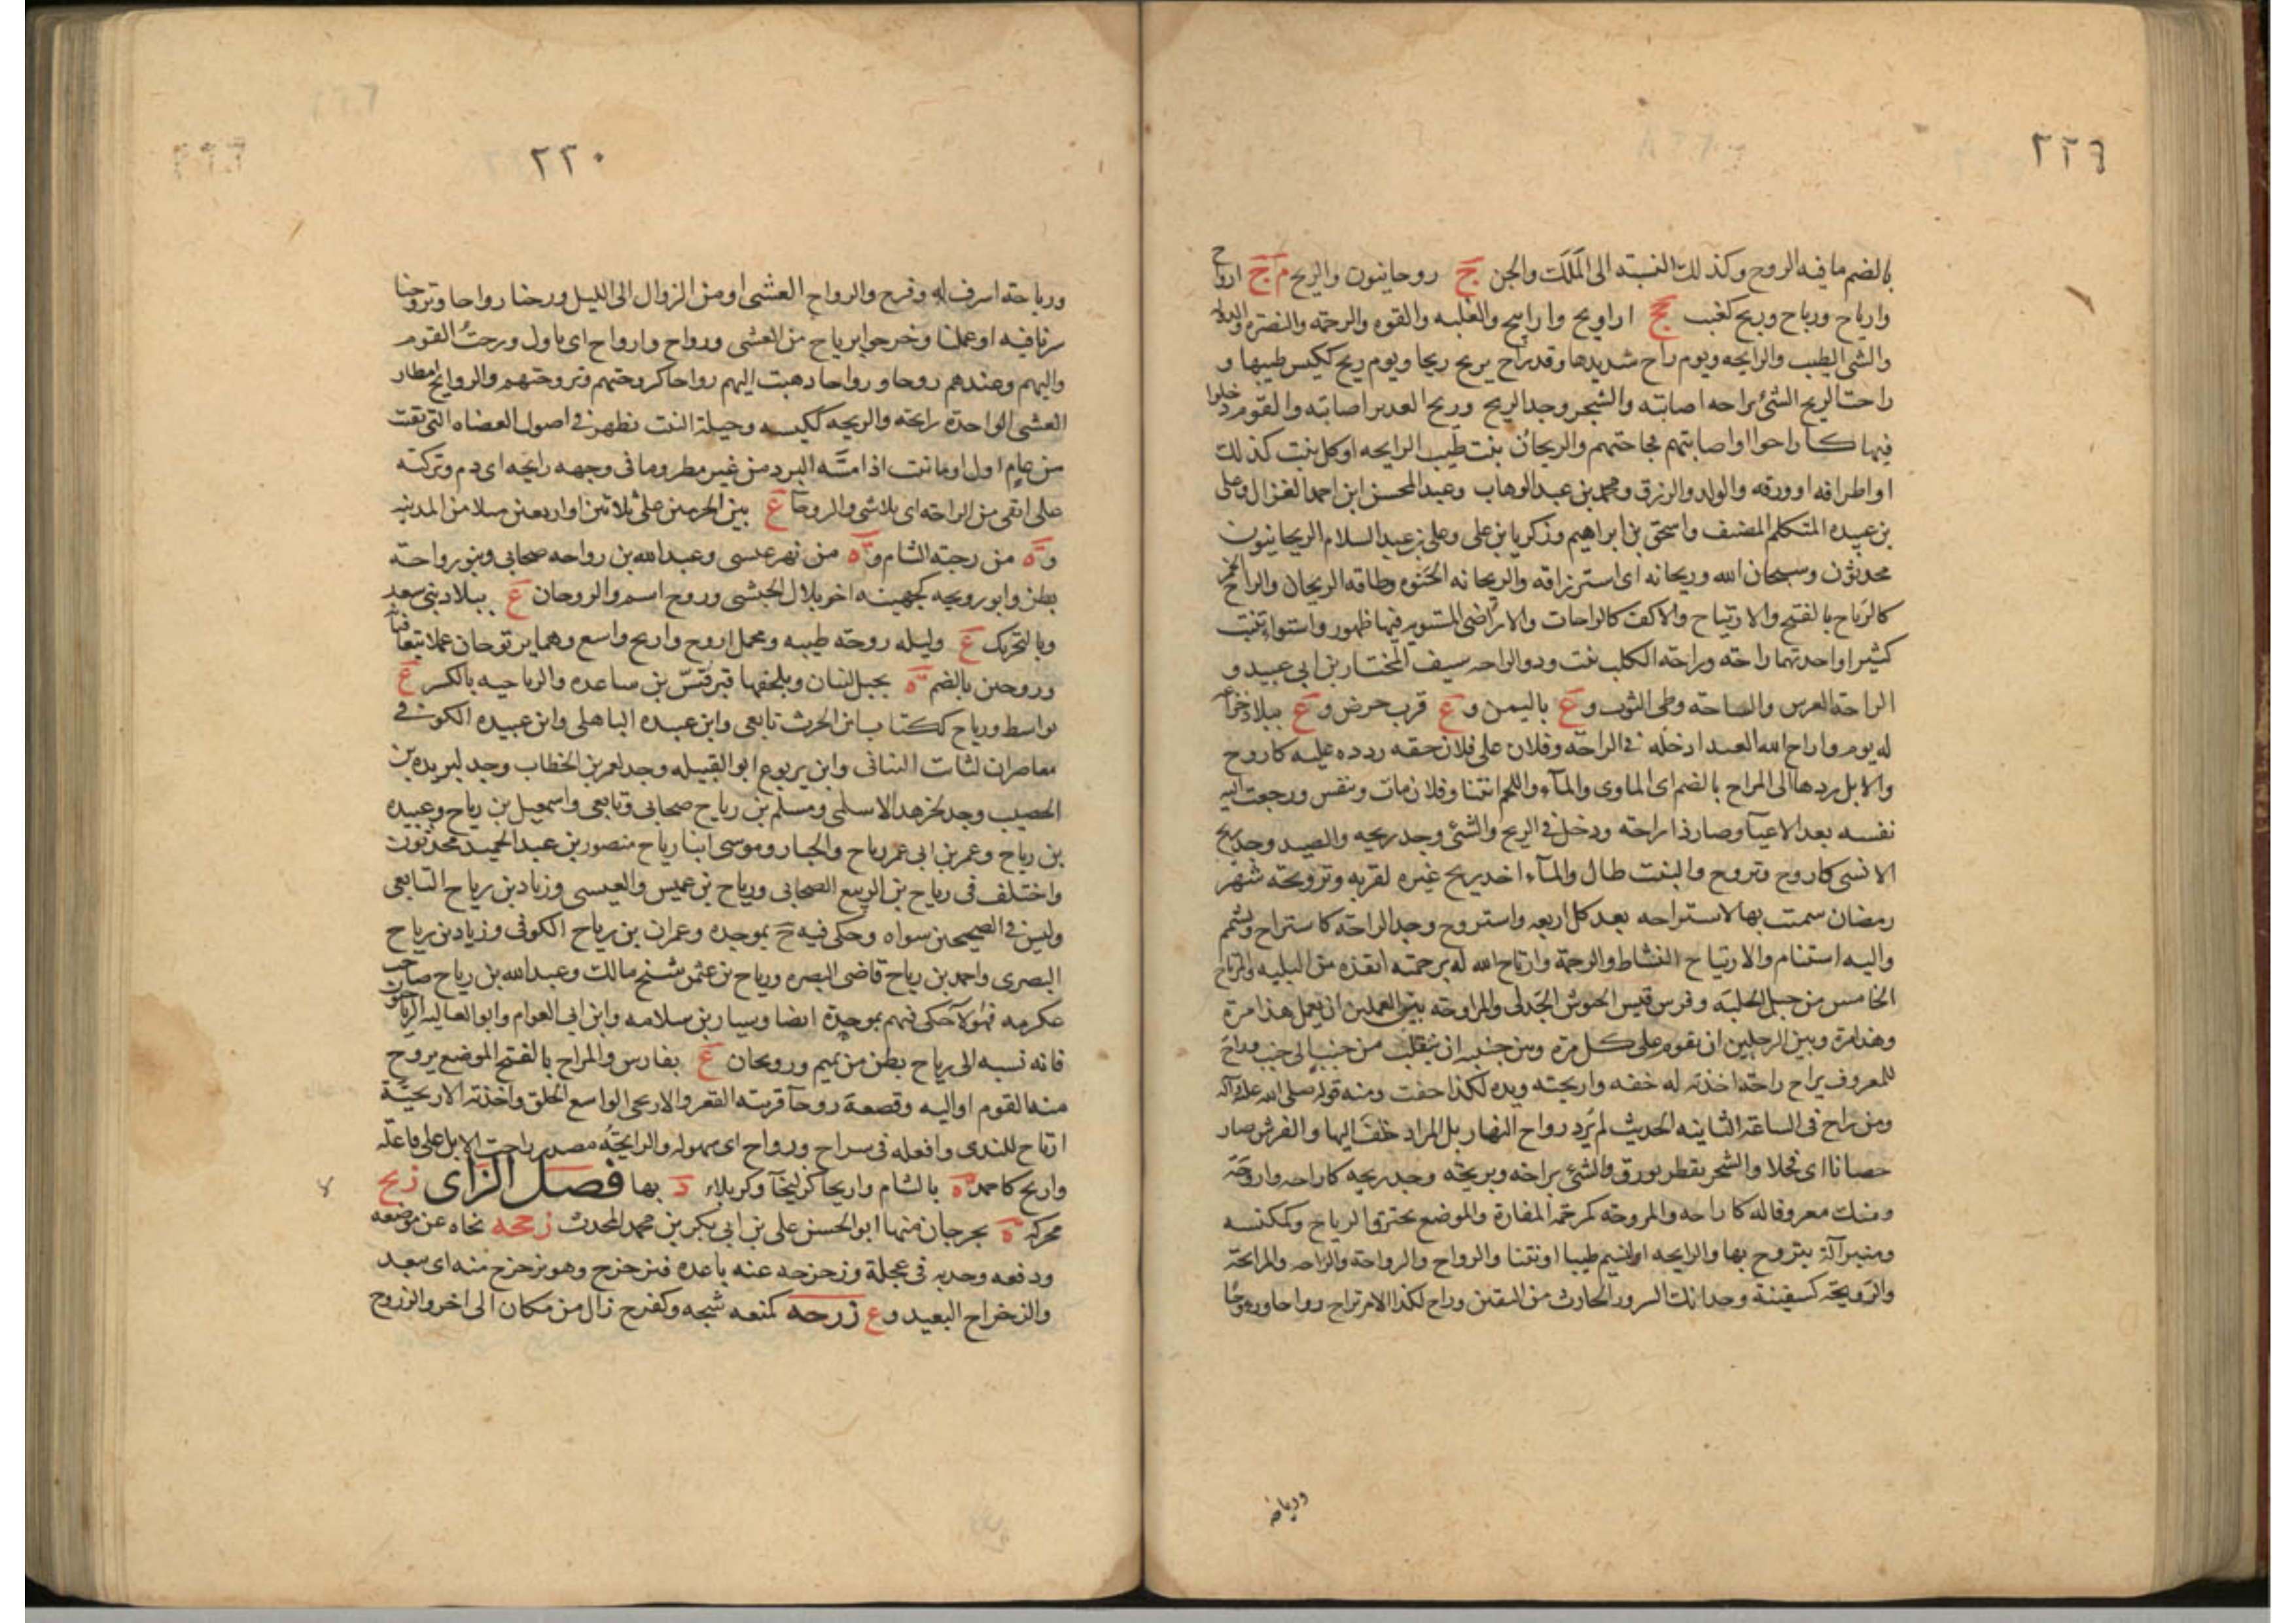 ٢٢٩
بالضم ما فيه الروح وكذلك النسبة الى المَلَك والجن ج روحانيون والريح م ج ارواح
وارياح ورياح وريح كعنب جج اراويح واراييح والغلبه والقوه والرحمة والنصرة والدولة
والشى الطيب والرايحه ويوم راح شديدها وقد راح يريح ريحا ويوم ريح ككيس طيبها و
راحت الريح الشئ يراحه اصابته والشجر وجد الريح وريح الغدير اصابته والقوم دخلوا
فيها كاراحوا او اصابتهم فجاحتهم والريحان نبت طيب الرايحه او كل نبت كذلك
او اطرافه او ورقه والولد والرزق ومحمد بن عبد الوهاب وعبد المحسن ابن احمد الغزال وعلى
بن عبيده المتكلم المصنف واسحق بن ابراهيم وزكريا بن على وعلى بن عبد السلام الريحانيون
محدثون وسبحان الله وريحانه اى استرزاقه والريحانه الحَنوه وطاقه الريحان والراح الخمر
كالرَياح بالفتح والارتياح والاكف كالراحات والاراضى المستويه فيها ظهور واستواء تنبت
كثيرا واحدتهما راحته وراحة الكلب نبت وذو الراحه سيف المختار بن ابى عبيد و
الراحة العرس والساحة وطى الثوب وع باليمن وع قرب حرض وع ببلاد خزاعه
له يوم واراح الله العبد ادخله فى الراحة وفلان على فلان حقه ردده عليه كاروح
والابل ردها الى المراح بالضم اى الماوى والمآء واللحم انتنا وفلان مات وتنفس ورجعت اليه
نفسه بعد الاعيآ وصار ذا راحة ودخل فى الريح والشئ وجد ريحه والصيد وجد ريح
الانسى كاروح وتروح والنبت طال والمآء اخذ ريح غيره لقربه وترويحة شهر
رمضان سميت بها لاستراحه بعد كل اربعه واستروح وجد الراحة كاستراح وتشمم
واليه استنام والارتياح النشاط والرحمة وارتاح الله له برحمته انقذه من البليه والمرتاح
الخامس من خيل الحلبة وفرس قيس الجيوش الجدلى والمراوحة بين العملين ان يعمل هذا مرة
وهذا مرة وبين الرجلين ان يقوم على كل مرة وبين جنبيه ان ينقلب من جنب الى جنب وراح
للمعروف يراح راحة اخذته له خفه واريحته ويده لكذا خفت ومنه قوله صلى الله عليه وآله
ومن راح فى الساعة الثانيه الحديث لم يُرِد رواح النهار بل المراد خفّ اليها والفرس صار
حصانا اى فحلا والشجر تفطر بورق والشئ يراحه ويريحه وجد ريحه كاراحه واروحه
ومنك معروفا ناله كاراحه والمروحه كمرحمه المفازة والموضع تخترق الرياح وكمكنسه
ومنبر آلة يتروح بها والرايحه النسيم طيبا او نتنا والرواح والرواحة والراحه والمرايحة
والرَويحة كسفينة وجدانك السرور الحادث من اليقين وراح لكذا الامر يراح رواحا وروحا
ورياحة
٢٢٠
ورياحته اشرف له وفرح والرواح العشى او من الزوال الى الليل ورحنا رواحا وتروحنا
سرنا فيه او عملنا وخرجوا برياح من العشى ورواح وارواح اى باول ورحتُ القوم
واليهم وعندهم روحا ورواحا ذهبت اليهم رواحا كروحتهم وتروحتهم والروايح امطار
العشى الواحدة رايحة والريحه ككيسه وحيلة النبت يظهر فى اصول العضاه التى بقيت
من عام اول او ما نبت اذا مسّه البرد من غير مطر وما فى وجهه رايحه اى دم وتركته
على انقى من الراحة اى بلا شى والروحآ ع بين الحرمين على ثلاثين او اربعين ميلا من المدينه
وة من رحبة الشام وة من نهر عيسى وعبد الله بن رواحه صحابى وبنو رواحة
بطن وابو رويحه كجهينه اخو بلال الحبشى وروح اسم والروحان ع ببلاد بنى سعد
وبالتحريك ع وليله روحة طيبه ومحمل اروح واريح واسع وهما يرتوحان عملا يتعاقبانه
وروحين بالضم ة بجبل لبنان وبلحفها قبر قُسّ بن ساعده والرياحيه بالكسر ع
بواسط ورياح ككتاب ابن الحرث تابعى وابن عبده الباهلى وابن عبيده الكوفى
معاصران لثابت البنانى وابن يربوع ابو القبيله وجد لعمر بن الخطاب وجد لبريده بن
الحصيب وجد لجرهد الاسلمى ومسلم بن رياح صحابى وتابعى واسمعيل بن رياح وعبيده
بن رياح وعمر بن ابى عمر رياح والخيار وموسى ابنا رياح منصور بن عبد الحميد محدثون
واختلف فى رياح بن الربيع الصحابى ورياح بن عميس والعبسى وزياد بن رياح التابعى
وليس فى الصحيحين سواه وحكى فيه خ بموحده وعمران بن رياح الكوفى وزياد بن رياح
البصرى واحمد بن رياح قاضى البصره ورياح بن عثمن شيخ مالك وعبد الله بن رياح صاحب
عكرمه فهولآ حكى فيهم بموحدة ايضا وسيار بن سلامه وابن ابى العوام وابو العاليه الرياحيون
فانه نسبه الى رياح بطن من تميم ورويحان ع بفارس والمراح بالفتح الموضع يروح
منه القوم او اليه وقصعة روحآ قريبه القعر والاريحى الواسع الخلق واخذته الاريحيّة
ارتاح للندى وافعله فى سراح ورواح اى سهوله والرايحةُ مصدر راحت الابل على فاعلة
واريح كاحمد ة بالشام واريحا كزليخآ وكربلاء د بها فصل الزاى زيح
محركه ة بجرجان منها ابو الحسن على بن ابى بكر بن محمد المحدث زححه نحاه عن موضعه
ودفعه وجذبه فى عجلة وزحزحه عنه باعده فتزحزح وهو بزحزح منه اى ببعد
والزحزاح البعيد وع زرحه كمنعه شجه وكفرح زال من مكان الى اخر والزروح